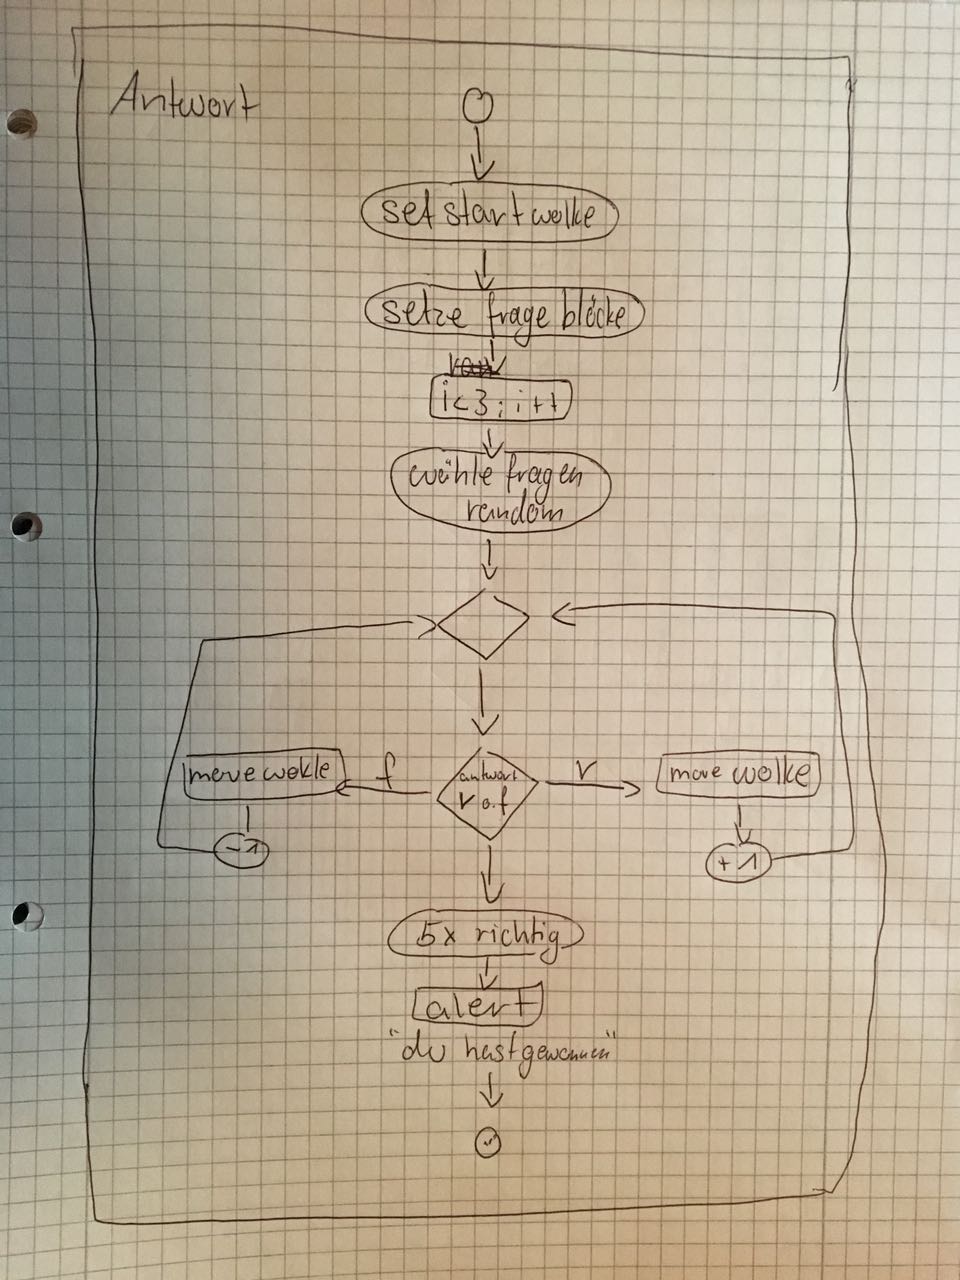 Antwort
set start wolke
setze frage blöcke
i<3; i++
wähle fragen
random
move wokle
f
antwort
r o.f
r
move wolke
-1
+1
5x richtig
alert
"du hast gewonnen"